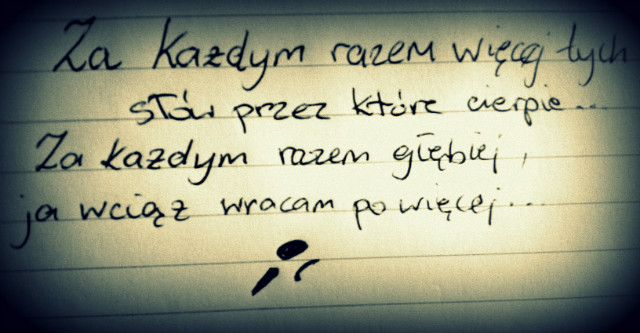 Za każdym razem więcej tych
słów przez które cierpie...
Za każdym razem głębiej,
ja wciąż wracam po więcej...